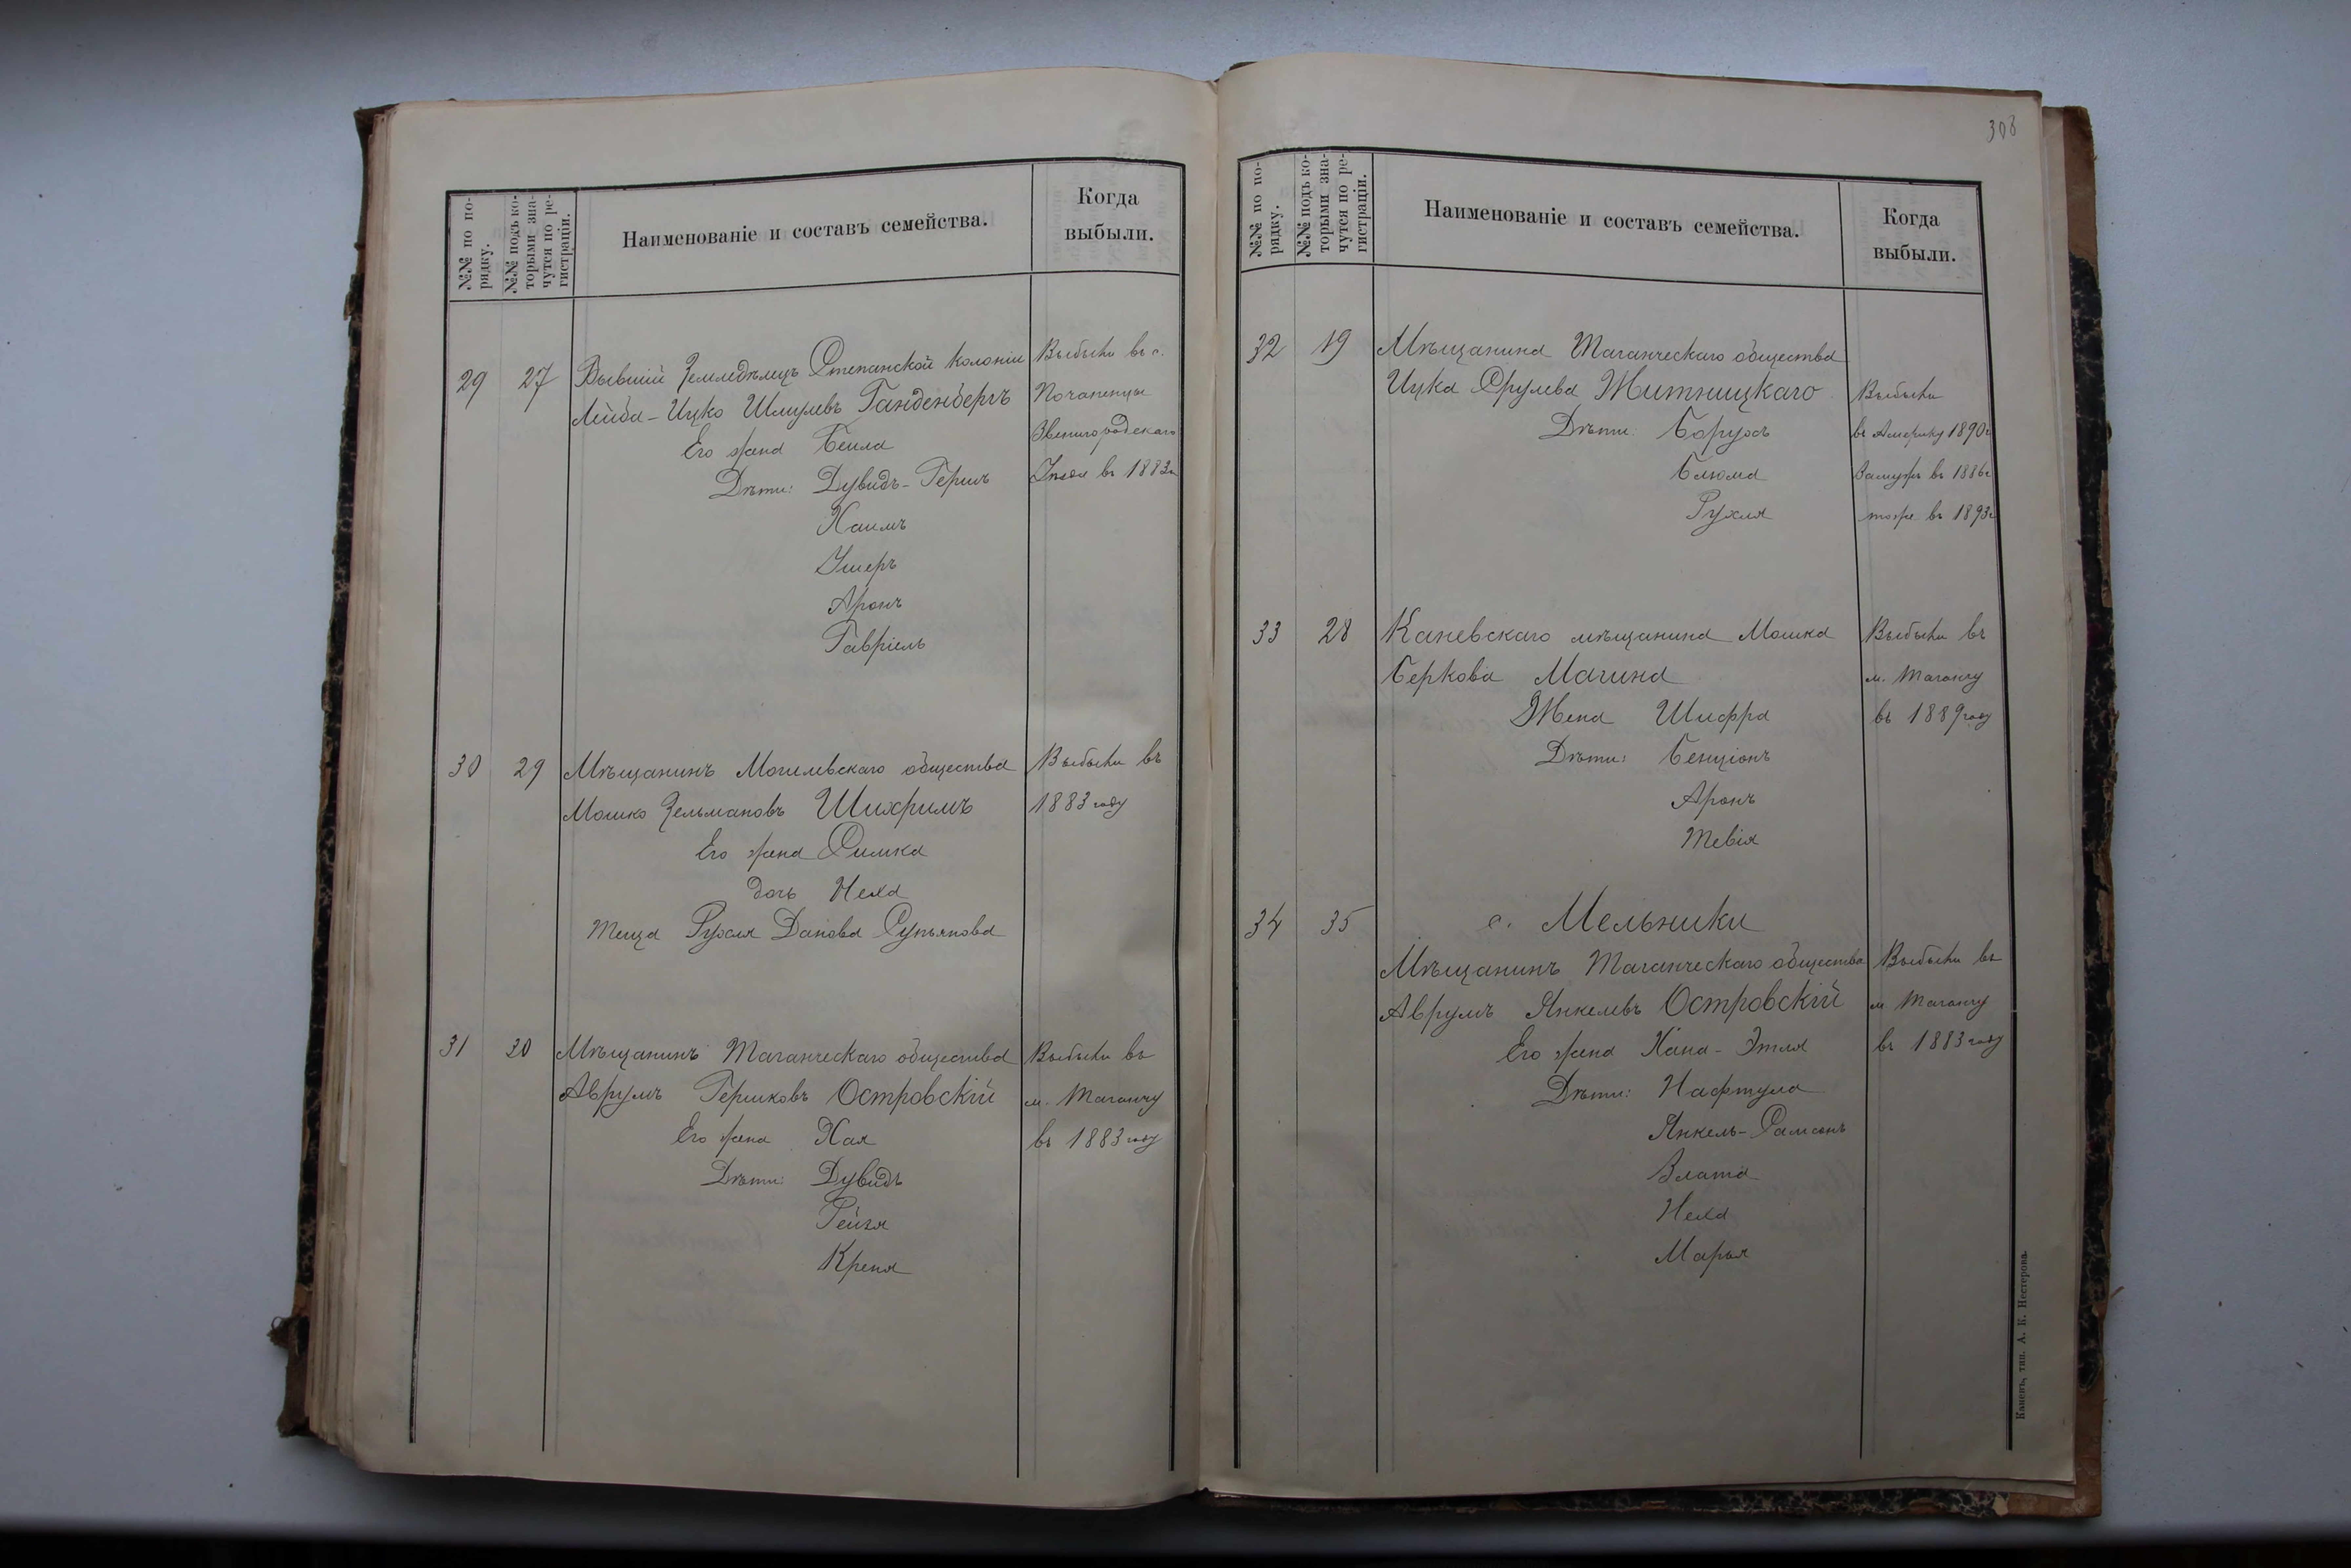 №№ по по-
рядку.
№№ подъ ко-
торыми зна-
чутся по ре-
гистраціи.
Наименованіе и составъ семейства.
Когда
выбыли.
29 27 Бывшій Земледѣлецъ Степанской колоніи
Лейба-Ицко Шмулевъ Ганденбергъ
Его жена Бейла
Дѣти: Дувидъ-Гершъ
Хаимъ
Ушеръ
Аронъ
Гавріель
Выбыли въ с.
Почапинцы
Звенигородскаго
въ 1883г
30 29 Мѣщанинъ Могилевскаго общества
Мошко Зельмановъ Шихримъ
Его жена Симка
дочь Неха
Теща Рухля Данова Супьянова
Выбыли въ
1883 году
31 30 Мѣщанинъ Таганческаго общества
Аврумъ Гершковъ Островскій
Его жена Хая
Дѣти: Дувидъ
Рейзя
Крейня
Выбыли въ
м. Таганчу
въ 1883 году
308
№№ по по-
рядку.
№№ подъ ко-
торыми зна-
чутся по ре-
гистраціи.
Наименованіе и составъ семейства.
Когда
выбыли.
32 19 Мѣщанина Таганческаго общества
Ицка Срулева Житницкаго
Дѣти: Борухъ
Блюма
Рухля
Выбыли
въ Америку 1890г
Замужъ въ 1886г
тоже въ 1893г
33 28 Каневскаго мѣщанина Мошка
Беркова Магина
Жена Шифра
Дѣти: Бенціонъ
Аронъ
Тевія
Выбыли въ
м. Таганчу
въ 1889 году
34 35 с. Мельники
Мѣщанинъ Таганческаго общества
Аврумъ Янкелевъ Островскій
Его жена Хана-Этля
Дѣти: Нафтула
Янкель-Самсонъ
Злата
Неха
Марья
Выбыли въ
м. Таганчу
въ 1883 году
Каневъ, тип. А. К. Нестерова.